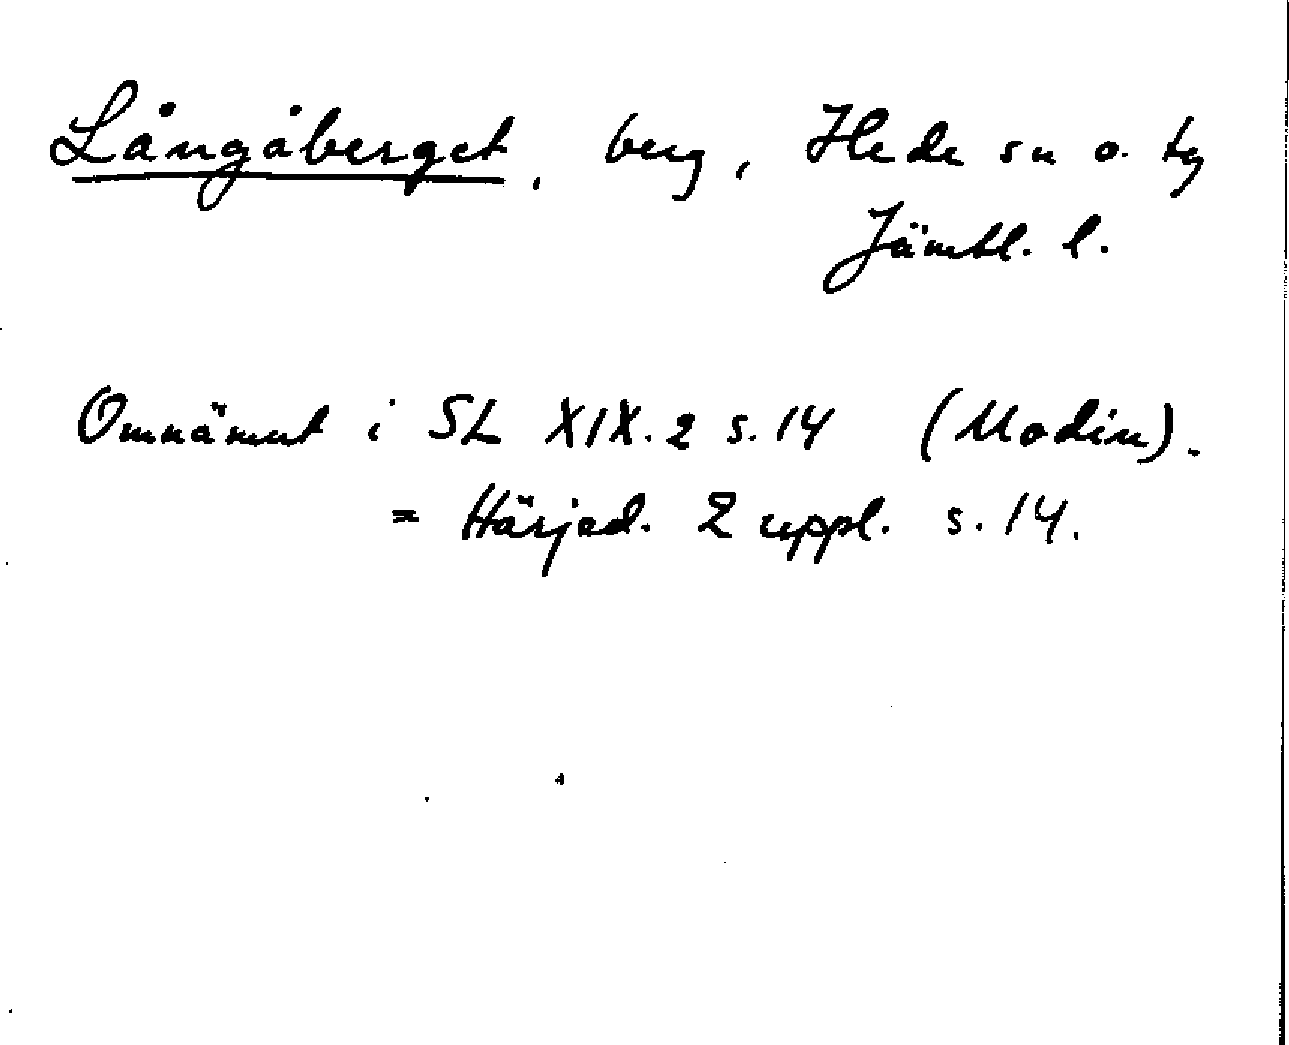 Långåberget, berg, Hede sn o. tg
Jämtl. l.
Omnämnt i SL XIX.2 s. 14 (Modin).
= Härjed. 2 uppl. s. 14.